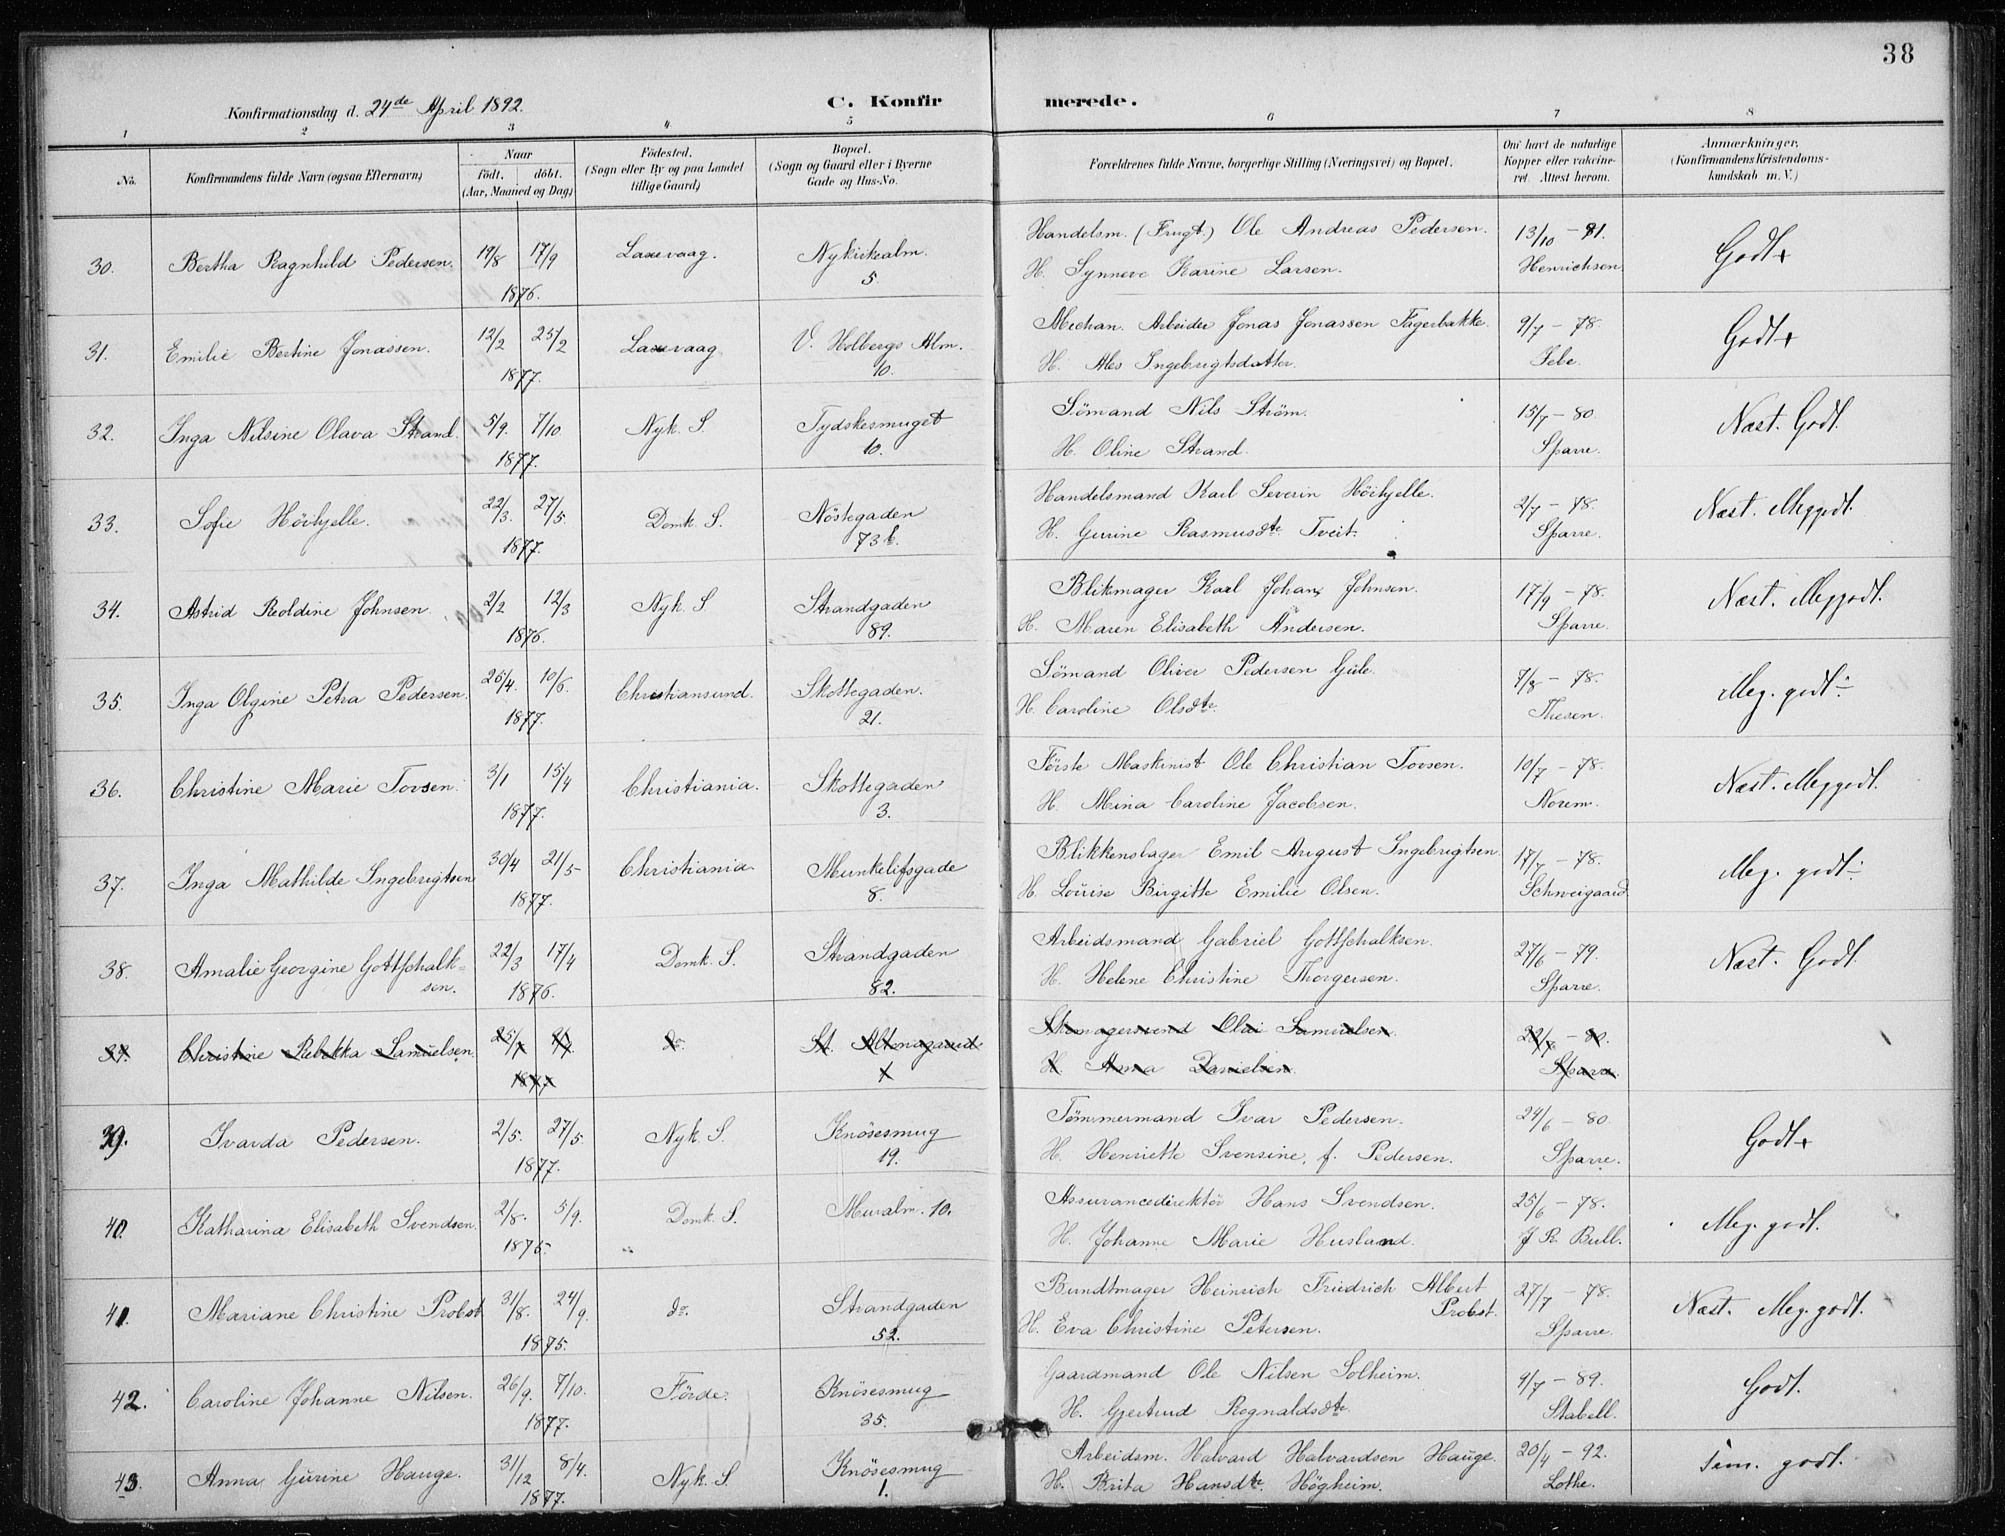 38
Konfirmationsdag d. 24de April 1892.
C. Konfirmerede.
1 2 3 4 5 6 7 8
No. Konfirmandens fulde Navn (ogsaa Efternavn) Naar født. døbt. (Aar, Maaned og Dag) Fødested. (Sogn eller By og paa Landet tillige Gaard) Bopæl. (Sogn og Gaard eller i Byerne Gade og Hus-No. Forældrenes fulde Navne, borgerlige Stilling (Næringsvei) og Bopæl. Om havt de naturlige Kopper eller vakcineret. Attest herom. Anmærkninger, (Konfirmandens Kristendomskundskab m. V.)
30. Bertha Ragnhild Pedersen. 19/8 17/9 Laxevaag. Nykirkealm. Handelsm. (Frugt.) Ole Andreas Pedersen. 13/10 - 81. Godt+
1876. 5. H. Synneve Karine Larsen. Henrichsen
31. Emilie Bertine Jonassen. 12/2 25/2 Laxevaag V. Holbergs Alm. Mechan. Arbeider Jonas Jonassen Fagerbakke. 9/7 - 78. Godt+
1877. 10. H. Ales Ingebrigtsdatter. Jebe.
32. Inga Nilsine Olava Strand. 5/9. 7/10. Nyk. S. Tydskesmuget Sömand Nils Ström. 15/7 - 80. Næst. Godt.
1877. 10. H. Oline Strand. Sparre.
33. Sofie Höihjelle. 22/3. 27/5. Domk. S. Nöstegaden Handelsmand Karl Severin Höihjelle. 2/7 - 78. Næst. Meggodt.
1877. 73 b. H. Gurine Rasmusdtr Tveit. Sparre.
34. Astrid Roldine Johnsen. 2/2 12/3 Nyk. S Strandgaden Blikmager Karl Johan Johnsen. 17/9 - 78. Næst. Meggodt.
1876. 89. H. Maren Elisabeth Andersen. Sparre.
35. Inga Olgine Petra Pedersen. 26/4. 10/6. Christiansund. Skottegaden. Sömand Oliver Pedersen Gule. 7/8 - 78. Meg. godt ÷
1877. 21. H. Caroline Olsdtr. Thesen.
36. Christine Marie Tovsen. 3/1 15/4 Christiania. Skottegaden Förste Maskinist Ole Christian Tovsen. 10/7 - 78. Næst. Meggodt.
1877. 3. H. Mina Caroline Jacobsen. Norem.
37. Inga Mathilde Ingebrigtsen 30/4 21/5 Christiania. Munkelifsgade Blikkenslager Emil August Ingebrigtsen 17/7 - 78. Meg. godt ÷
1877. 8. H. Louise Birgitte Emilie Olsen. Schweigaard
38. Amalie Georgine Gottschalk= 22/3 17/4 Domk. S. Strandgaden Arbeidsmand Gabriel Gottschalksen. 27/6 - 79. Næst. Godt.
sen. 1876. 82. H. Helene Christine Thorgersen. Sparre.
39. Christine Rebekka Samuelsen. 25/7 do. St. Skomagersvend Olai Samuelsen. 22/7 - 80.
1877. H. Anna Danielsen. Sparre.
39. Ivarda Pedersen. 2/5. 27/5. Nyk. S. Knösesmug Tömmermand Ivar Pedersen. 24/6 - 80. Godt+
1877. 19. H. Henriette Svensine, f. Pedersen. Sparre.
40. Katharina Elisabeth Svendsen. 2/8. 5/9. Domk. S. Muralm. 10. Assurancedirektör Hans Svendsen. 25/6 - 78. Meg. godt.
1876. H. Johanne Marie Husland. J R. Bull.
41. Mariane Christine Probst 31/8. 24/9. do. Strandgaden Bundtmager Heinrich Friedrich Albert Probst. 27/7 - 78. Næst. Meg. godt.
1875. 52. H. Eva Christine Petersen. Sparre.
42. Caroline Johanne Nilsen. 26/9. 7/10. Förde. Knösesmug Gaardmand Ole Nilsen Solheim. 9/7 - 89. Godt.
1877. 35. H. Gjertrud Rognaldsdtr. Stabell.
43. Anna Gurine Hauge. 31/12 8/4. Nyk. S Knösesmug Arbeidsm. Halvard Halvardsen Hauge. 20/4 - 92. Tem. godt.
1877. 1. H. Brita Hansdtr. Högheim. Lothe.